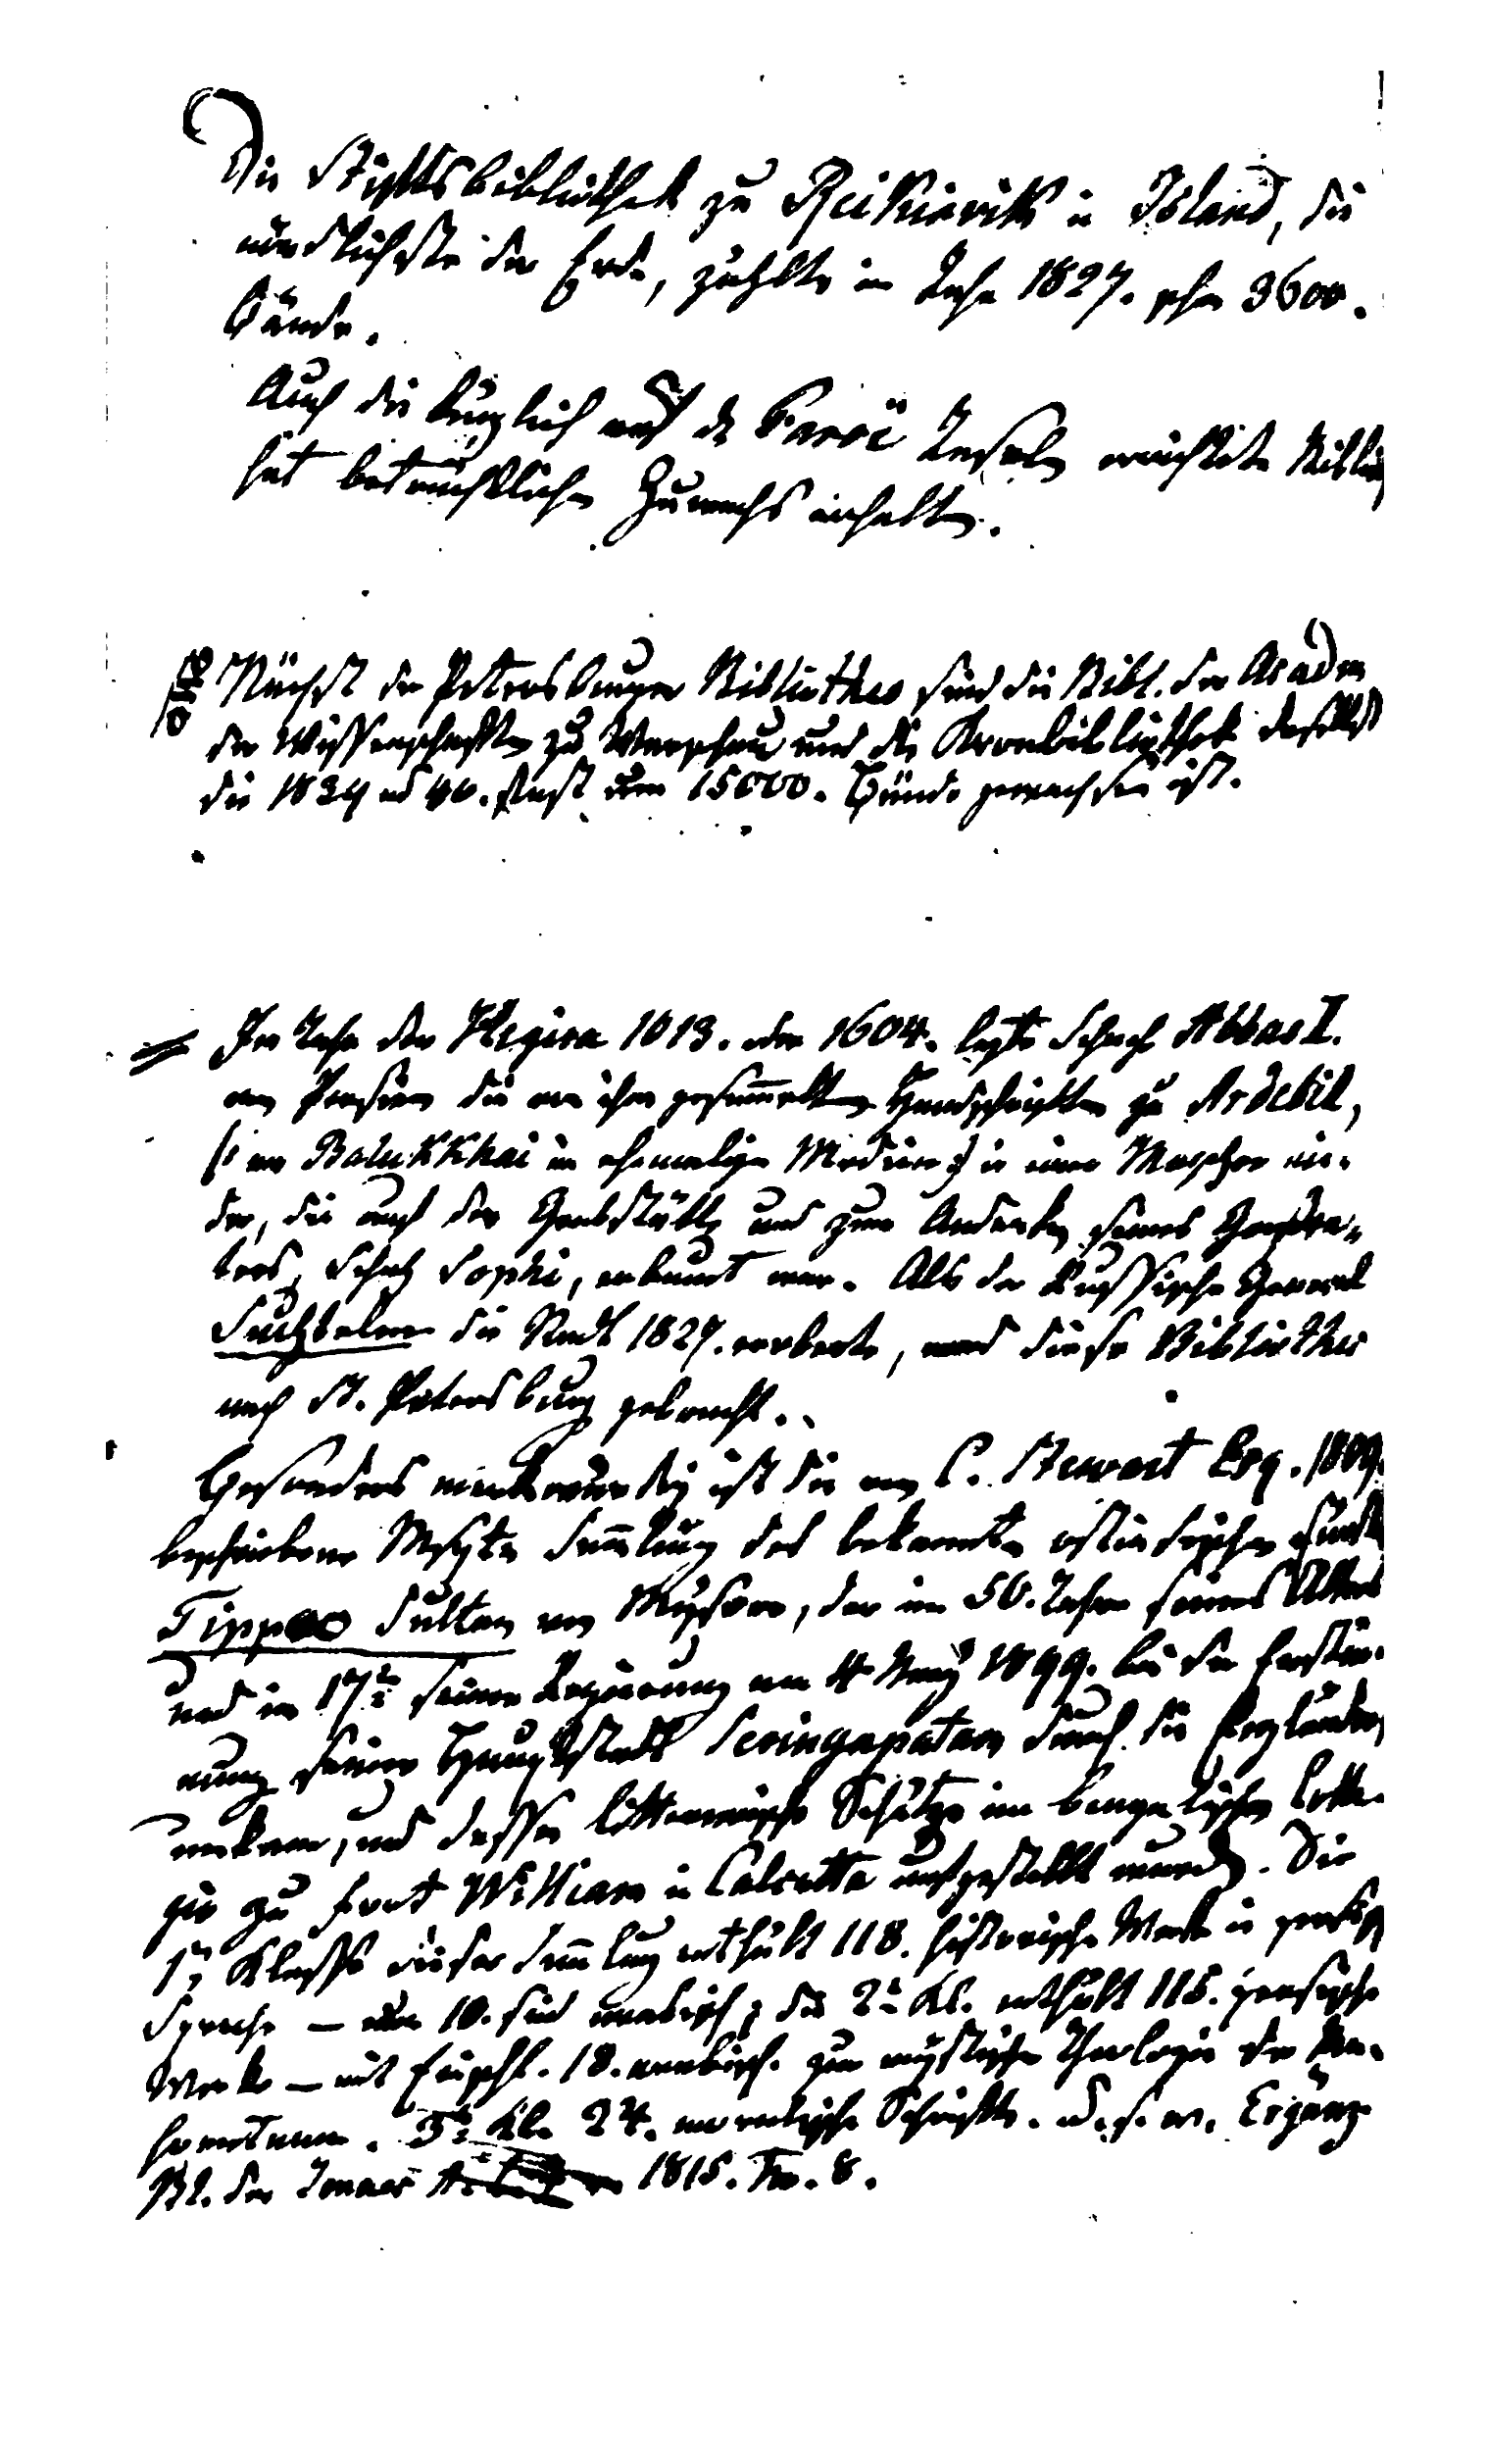 Die Stiftsbibliothek zu Reikiavik in Island, die
nördlichste der Erde, zählte im Jahr 1827. schon 3600.
Bände.
Auch die kürzlich auf den Faröe Inseln errichtete
hat beträchtlichen Zuwachs erhalten.
Nächst der Petersburger Bibliothek sind die Bibl. der Academ
der Wissenschaften zu Warschau und die Kronbibliothek daselbst
die 1834 fast um 15000. Bände gewachsen ist.
Im Jahr der Hegira 1013. oder 1604. legte Schach Abbas I.
von Persien die von ihm gesammelten Handschriften zu Ardebil,
(: Balukkhai im ehemaligen Medien :) in einer Moschee nie-
der, die auf der Grabstätte und zum Andenken seines
Schach Sophi, erbaut war. Als der Russische General
Suchtelen die Stadt 1827. eroberte, ward diese Bibliothek
nach St. Petersburg gebracht.
Besonders merkwürdig ist die von C. Stewart Esq. 1809.
beschriebene Mspte Sammlung des bekannten ostindischen
Tippoo Sultan von Mysore, der im 50. Jahre seines Alters
und im 17ten seiner Regierung am 4 May 1799. bei der Erstür-
mung seiner Hauptstadt Seringapatam durch die Engländer,
umkam, und dessen litterarische Schätze im bengalischen Colle-
gio zu Fort William in Calcutta aufgestellt wurden. Die
1te Klasse dieser Sammlung enthält 118. historische Werke in persisch
Sprache — nur 10. sind arabisch; die 2te Kl. enthält 115. persische
Werke — mit Einschl. 18. arabisch. zur mystischen Theologie der
3te Kl. 24. moralische Schriften. u. s. w. Ergänz
Bl. der Jenaer 1815. No. 8.